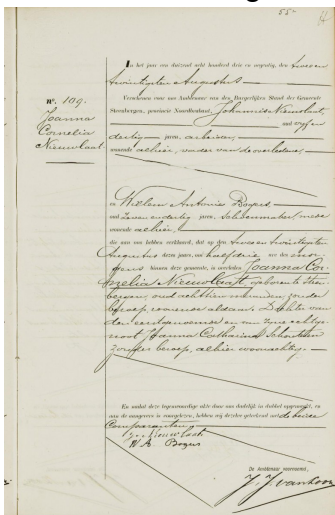 55-
In het jaar een duizend acht honderd drie en negentig, den twee en
twintigsten Augustus
Verscheen voor ons Ambtenaar van den Burgerlijken Stand der Gemeente
Steenbergen, provincie Noordbrabant, Johannis Nieuwlaat,
oud vijf en
dertig jaren, arbeider,
wonende alhier, vader van de overledene,
nº. 109.
Joanna
Cornelia
Nieuwlaat
en Willem Antonie Bogers
oud zeven en dertig jaren, schoenmaker, mede
wonende alhier,
die aan ons hebben verklaard, dat op den twee en twintigsten
Augustus dezes jaars, om half drie ure des mor-
gens binnen deze gemeente, is overleden Joanna Cor-
nelia Nieuwlaat, geboren te Steen-
bergen, oud achttien maanden, zonder
beroep, wonende aldaar. Dochter van
den eerstgenoemde en van zijne echtge-
noot Joanna Catharina
zonder beroep, alhier woonachtig.
En nadat deze tegenwoordige akte door ons dadelijk in dubbel opgemaakt, en
aan de aangevers is voorgelezen, hebben wij dezelve geteekend met de beide
Comparanten.
J. Nieuwlaat
W A Bogers
De Ambtenaar voornoemd,